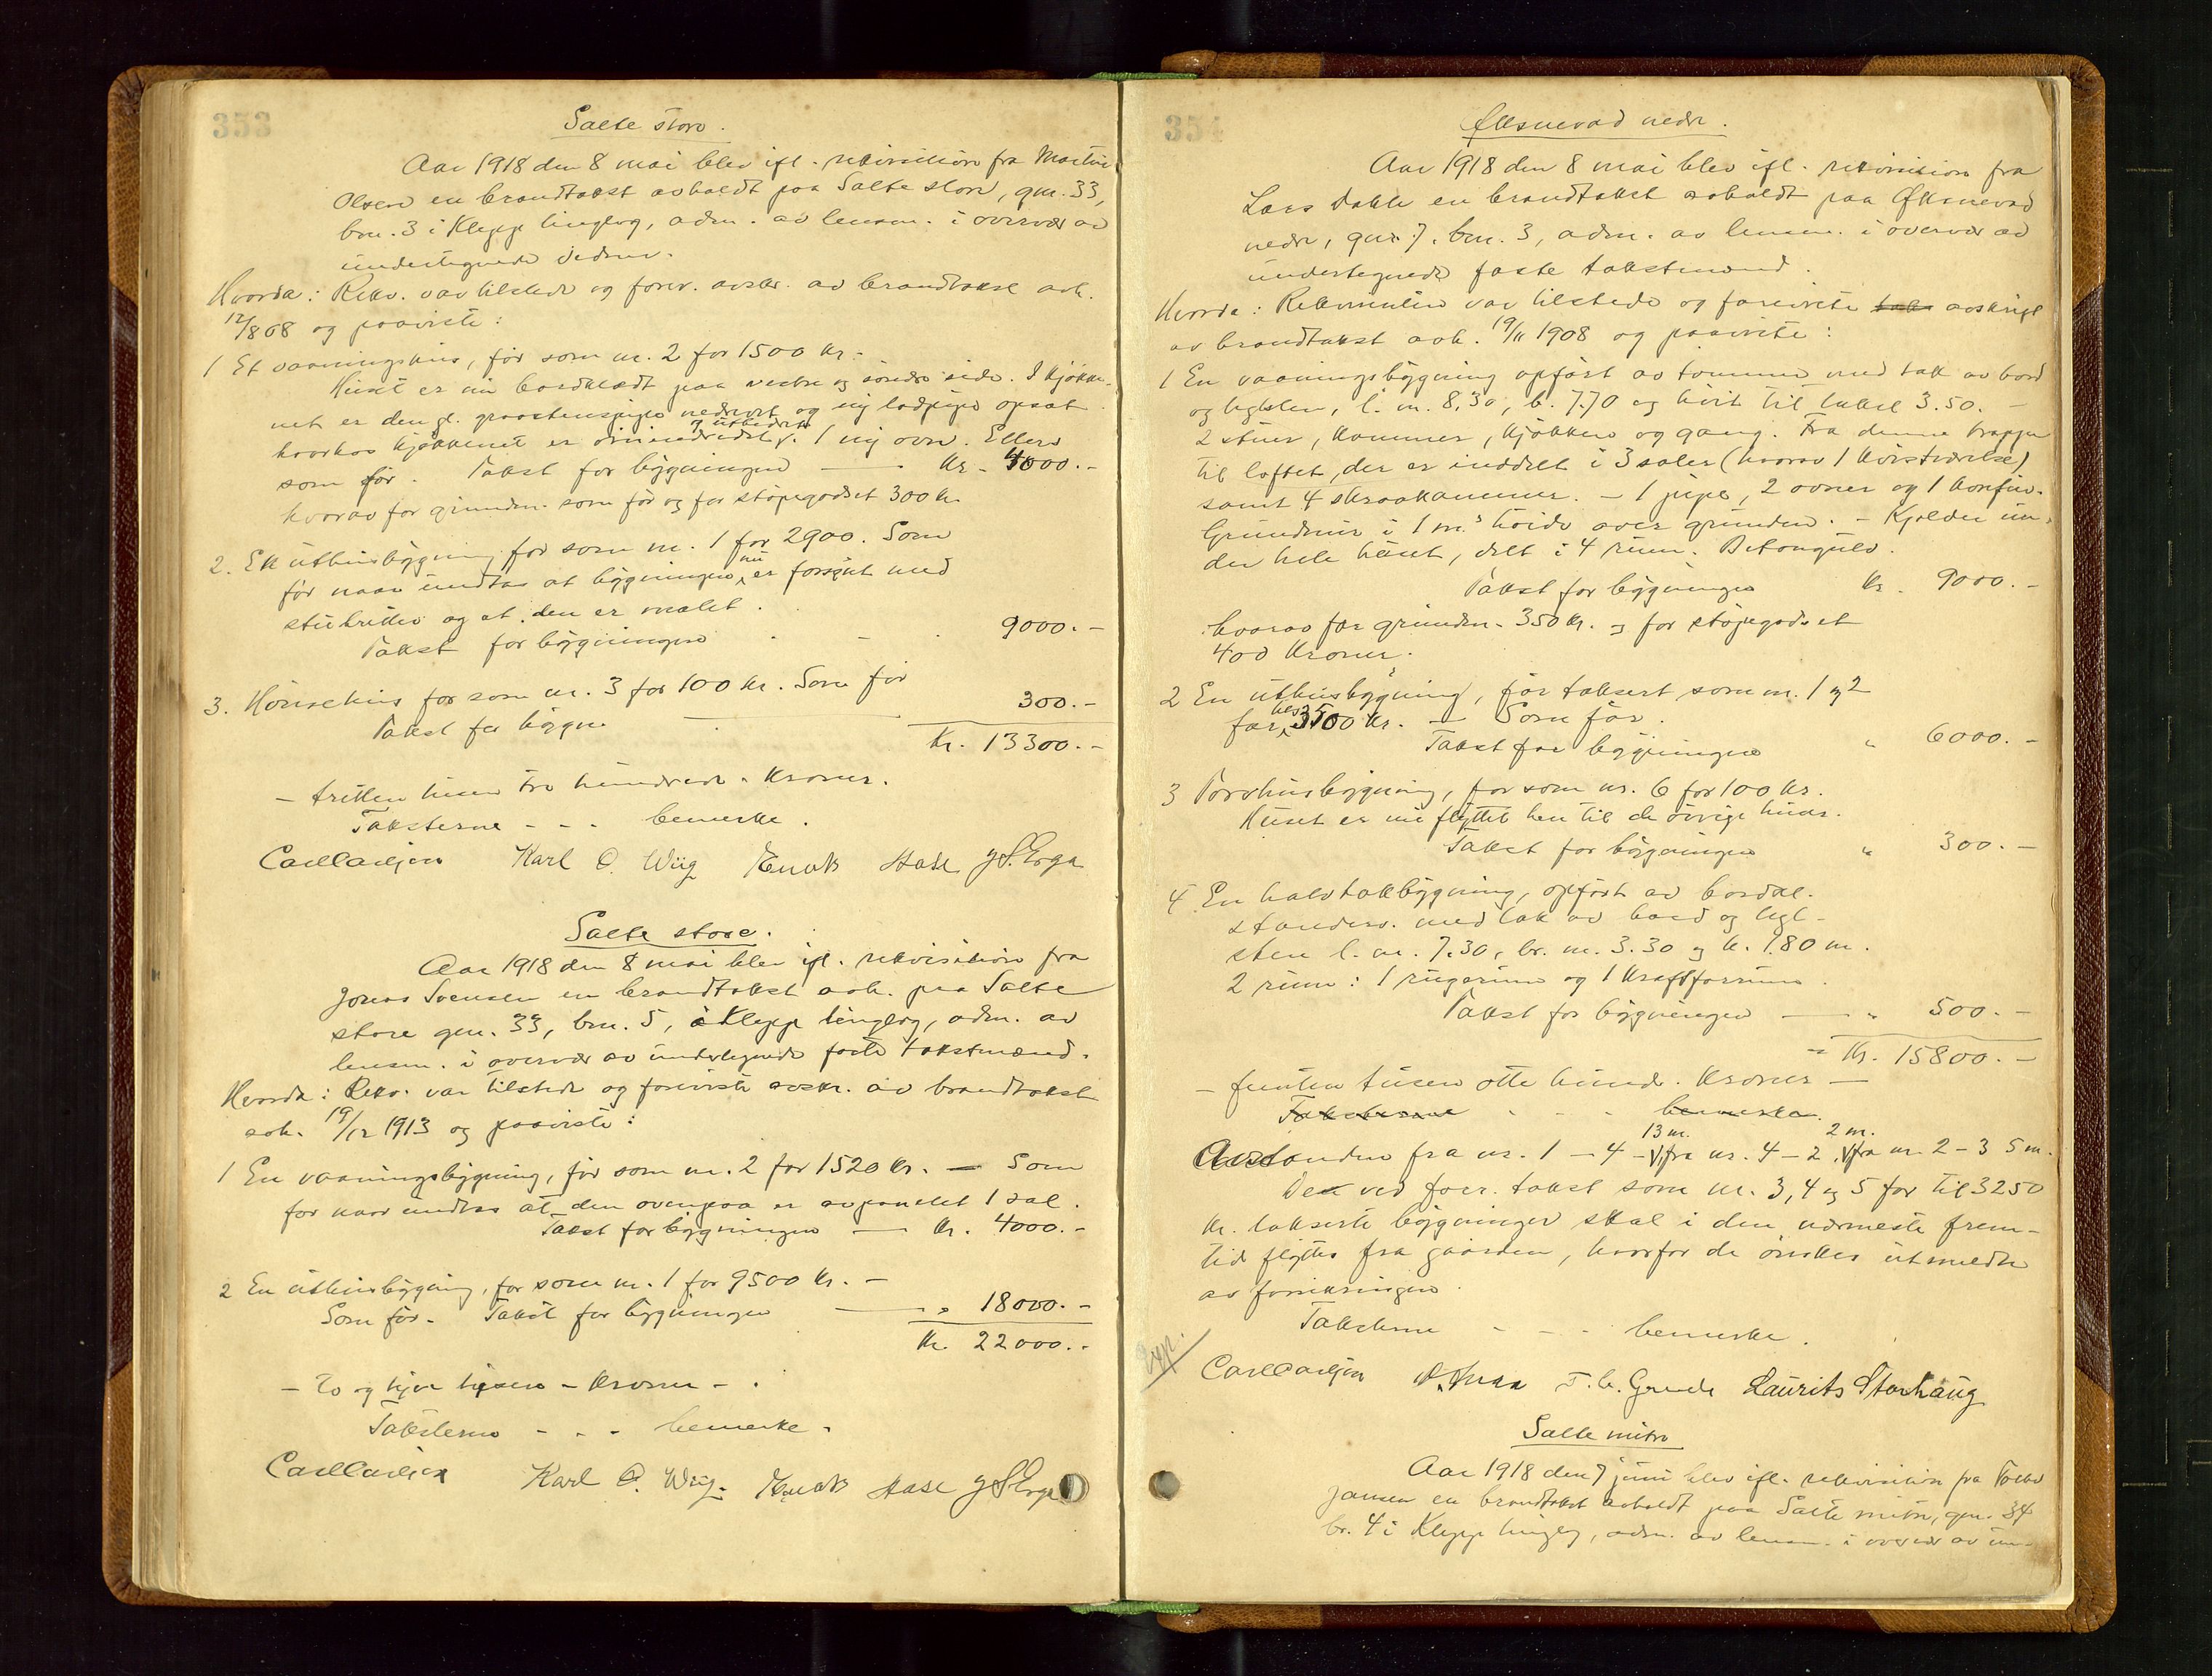 353
Salte store.
Aar 1918 den 8 mai blev ifl. rekvisition fra Martin
Olsen en brandtakst avholdt paa Salte store, gnr. 33,
brn. 3 i Klepp tinglag, adm. av lensm. i overvær av
undertegnede
Hvorda: Rekv. var tilstede og forev. avskr. av brandtakst avh.
12/8 08 og paaviste:
1 Et vaaningshus, før som nr. 2 for 1500 kr. -
Huset er nu bordklædt paa vestre og søndre side. I kjøkke-
net er den gl. graastenspipe nedrevet og ny ladpipe opsat
hvorhos kjøkkenet er omindredet og utbedret. 1 ny ovn. Ellers
som før. Takst for bygningen — Kr. 4000.-
hvorav for grundm. som før og for støpegodset 300 kr.
2. En uthusbygning før som nr. 1 for 2900. Som
før naar undtas at bygningen nu er forsynt med
og at den er malet.
Takst for bygningen 9000.-
3. Hønsehus før som nr. 3 for 100 kr. Som før
Takst for bygn. 300.-
Kr. 13300.-
- tretten tusen tre hundrede - Kroner.
Taksterne - - - bemerke.
Carl Carlsen Karl O. Wiig Enok Hase J S. Erga
Salte store.
Aar 1918 den 8 mai blev ifl. rekvisition fra
Jonas Svensen en brandtakst avh. paa Salte
store gnr. 33, brn. 5, i Klepp tinglag, adm. av
lensm. i overvær av undertegnede faste takstmænd.
Hvorda: Rekv. var tilstede og foreviste avskr. av brandtakst
avh. 19/12 1913 og paaviste:
1 En vaaningsbygning, før som nr. 2 for 1520 kr. — Som
før naar undtas at den ovenpaa er avpanelet 1 sal.
Takst for bygningen — Kr. 4000.-
2 En uthusbygning, før som nr. 1 for 9500 Kr. -
Som før. Takst for bygningen — " 18000.-
Kr. 22000.-
- To og tyve tusen - Kroner -.
Taksterne - - - bemerke.
Carl Carlsen Karl O. Wiig. Enok Hase J S Erga
354
Øksnevad nedre.
Aar 1918 den 8 mai blev ifl. rekvisition fra
Lars en brandtakst avholdt paa Øksnevad
nedre, gnr. 7. brn. 3, adm. av lensm. i overvær av
undertegnede faste takstmænd.
Hvorda: Rekvirenten var tilstede og foreviste avskrift
av brandtakst avh. 19/11 1908 og paaviste:
1 En vaaningsbygning opført av tømmer med tak av bord
og teglsten, l. m. 8.30, b. 7.70 og høit til taket 3.50. -
2 stuer, kammer, kjøkken og gang. Fra denne trappe
til loftet, der er inddelt i 3 saler (hvorav 1 kvistværelse)
samt 4 skraakammer. - 1 pipe, 2 ovner og 1 komfur.
Grundmur i 1 m.s høide over grunden. - Kjelder un-
der hele huset, delt i 4 rum. Betongulv.
Takst for bygningen Kr. 9000.-
hvorav for grundm. 350 kr. og for støpegodset
400 Kroner.
2 En uthusbygning, før taksert som nr. 1 og 2
for hhv. 3500 kr. - Som før.
Takst for bygningen " 6000.-
3 Torvhusbygning, før som nr. 6 for 100 kr.
Huset er nu flyttet hen til de øvrige huse.
Takst for bygningen " 300.-
4 En halvtakbygning, opført av bordkl.
standerv. med tak av bord og tegl-
sten l. m. 7.30, br. m. 3.30 og h. 1.80 m.
2 rum: 1 rugerum og 1 kraftforrum.
Takst for bygningen — " 500.-
Kr. 15800.-
- femten tusen otte hundr. Kroner -
Taksterne - - - bemerke.
Avstanden fra nr. 1 - 4 - 13 m. fra nr. 4 - 2, 2 m. fra nr. 2 - 3 5 m.
De ved forr. takst som nr. 3, 4 og 5 for til 3250
kr. takserte bygninger skal i den nærmeste frem-
tid flyttes fra gaarden, hvorfor de ønskes utmeldt
av forsikringen.
Taksterne - - - bemerke.
Exp.
Carl Carlsen T. G. Grude Laurits Storhaug
Salte mitre
Aar 1918 den 7 juni blev ifl. rekvisition fra
Jansen en brandtakst avholdt paa Salte mitre, gnr. 34
br. 4 i Klepp tinglag, adm. av lensm. i overvær av un-